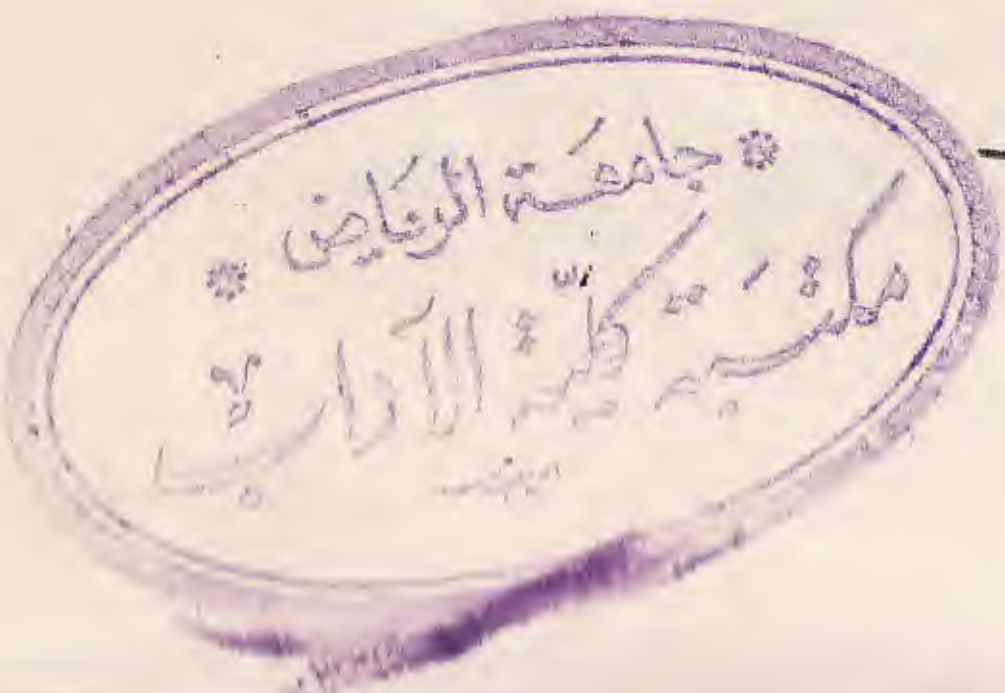 * جامعة الرياض *
مكتبة كليّة الآداب